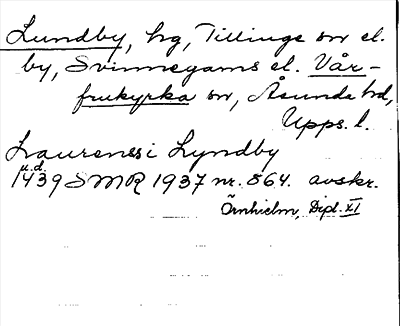 Lundby, hg, Tillinge sn el.
by, Svinnegarns el. Vår-
frukyrka sn, Åsunda hd,
Upps. l.
Laurenssi Lyndby
u.d.
1439 SMR 1937 nr. 564. avskr.
Örnhielm, Dipl. XI